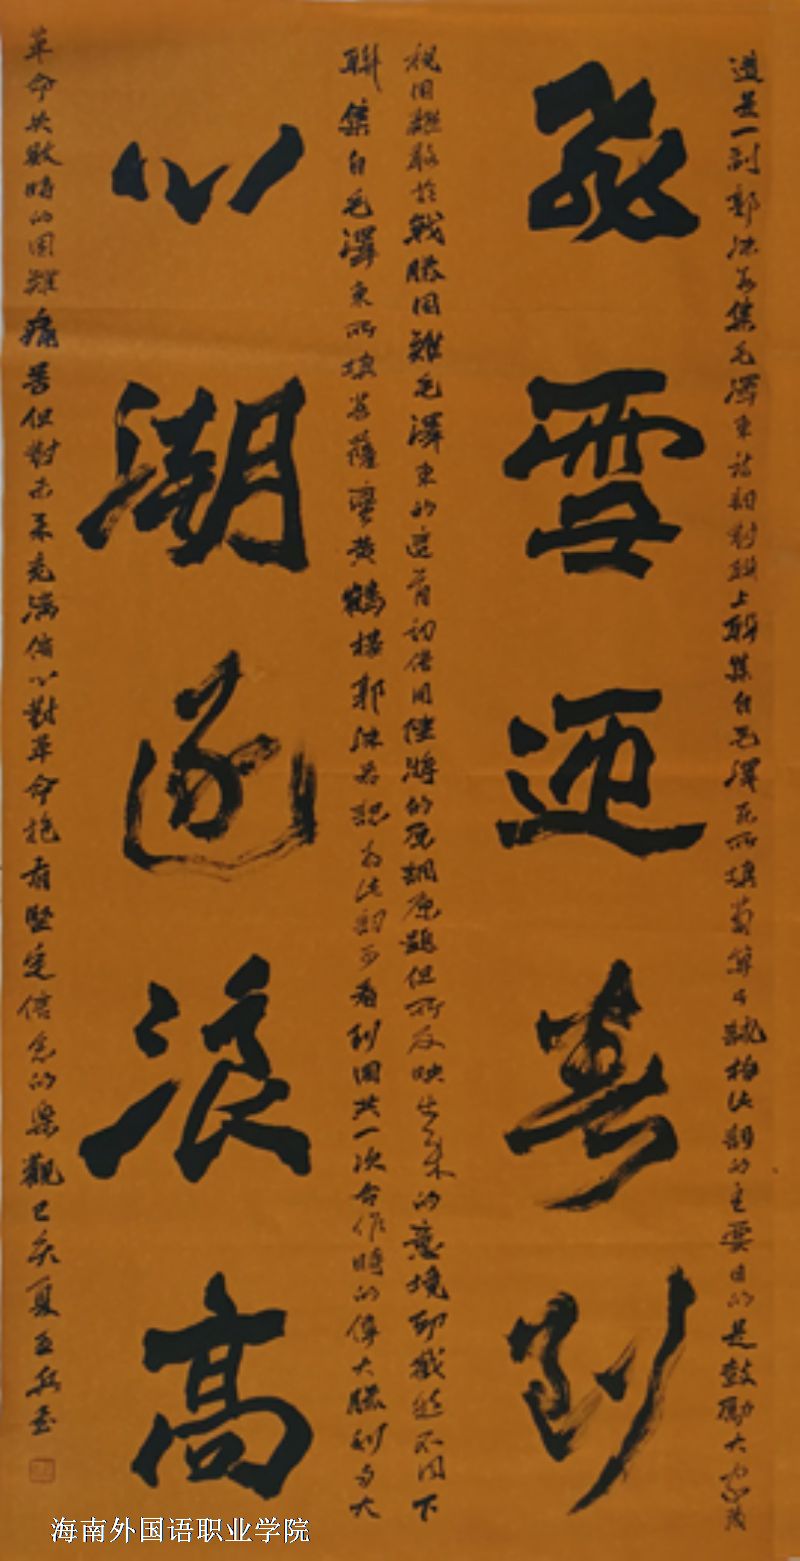 飛雪迎春到
這是一副郭沫若集毛澤東詩詞對聯上聯集自毛澤東所填蔔算子詠梅此詞的主要目的是鼓勵大家蔑
視困難敢於戰勝困難毛澤東的這首詞借用陸游的原調原題但所反映出來的意境卻截然不同下
心潮逐浪高
聯集自毛澤東所填菩薩蠻黃鶴樓郭沫若認為此詞可看到國共一次合作時的偉大勝利与大
革命失敗時的困難痛苦但對未來充滿信心對革命抱有堅定信念的樂觀己亥夏
海南外国语职业学院